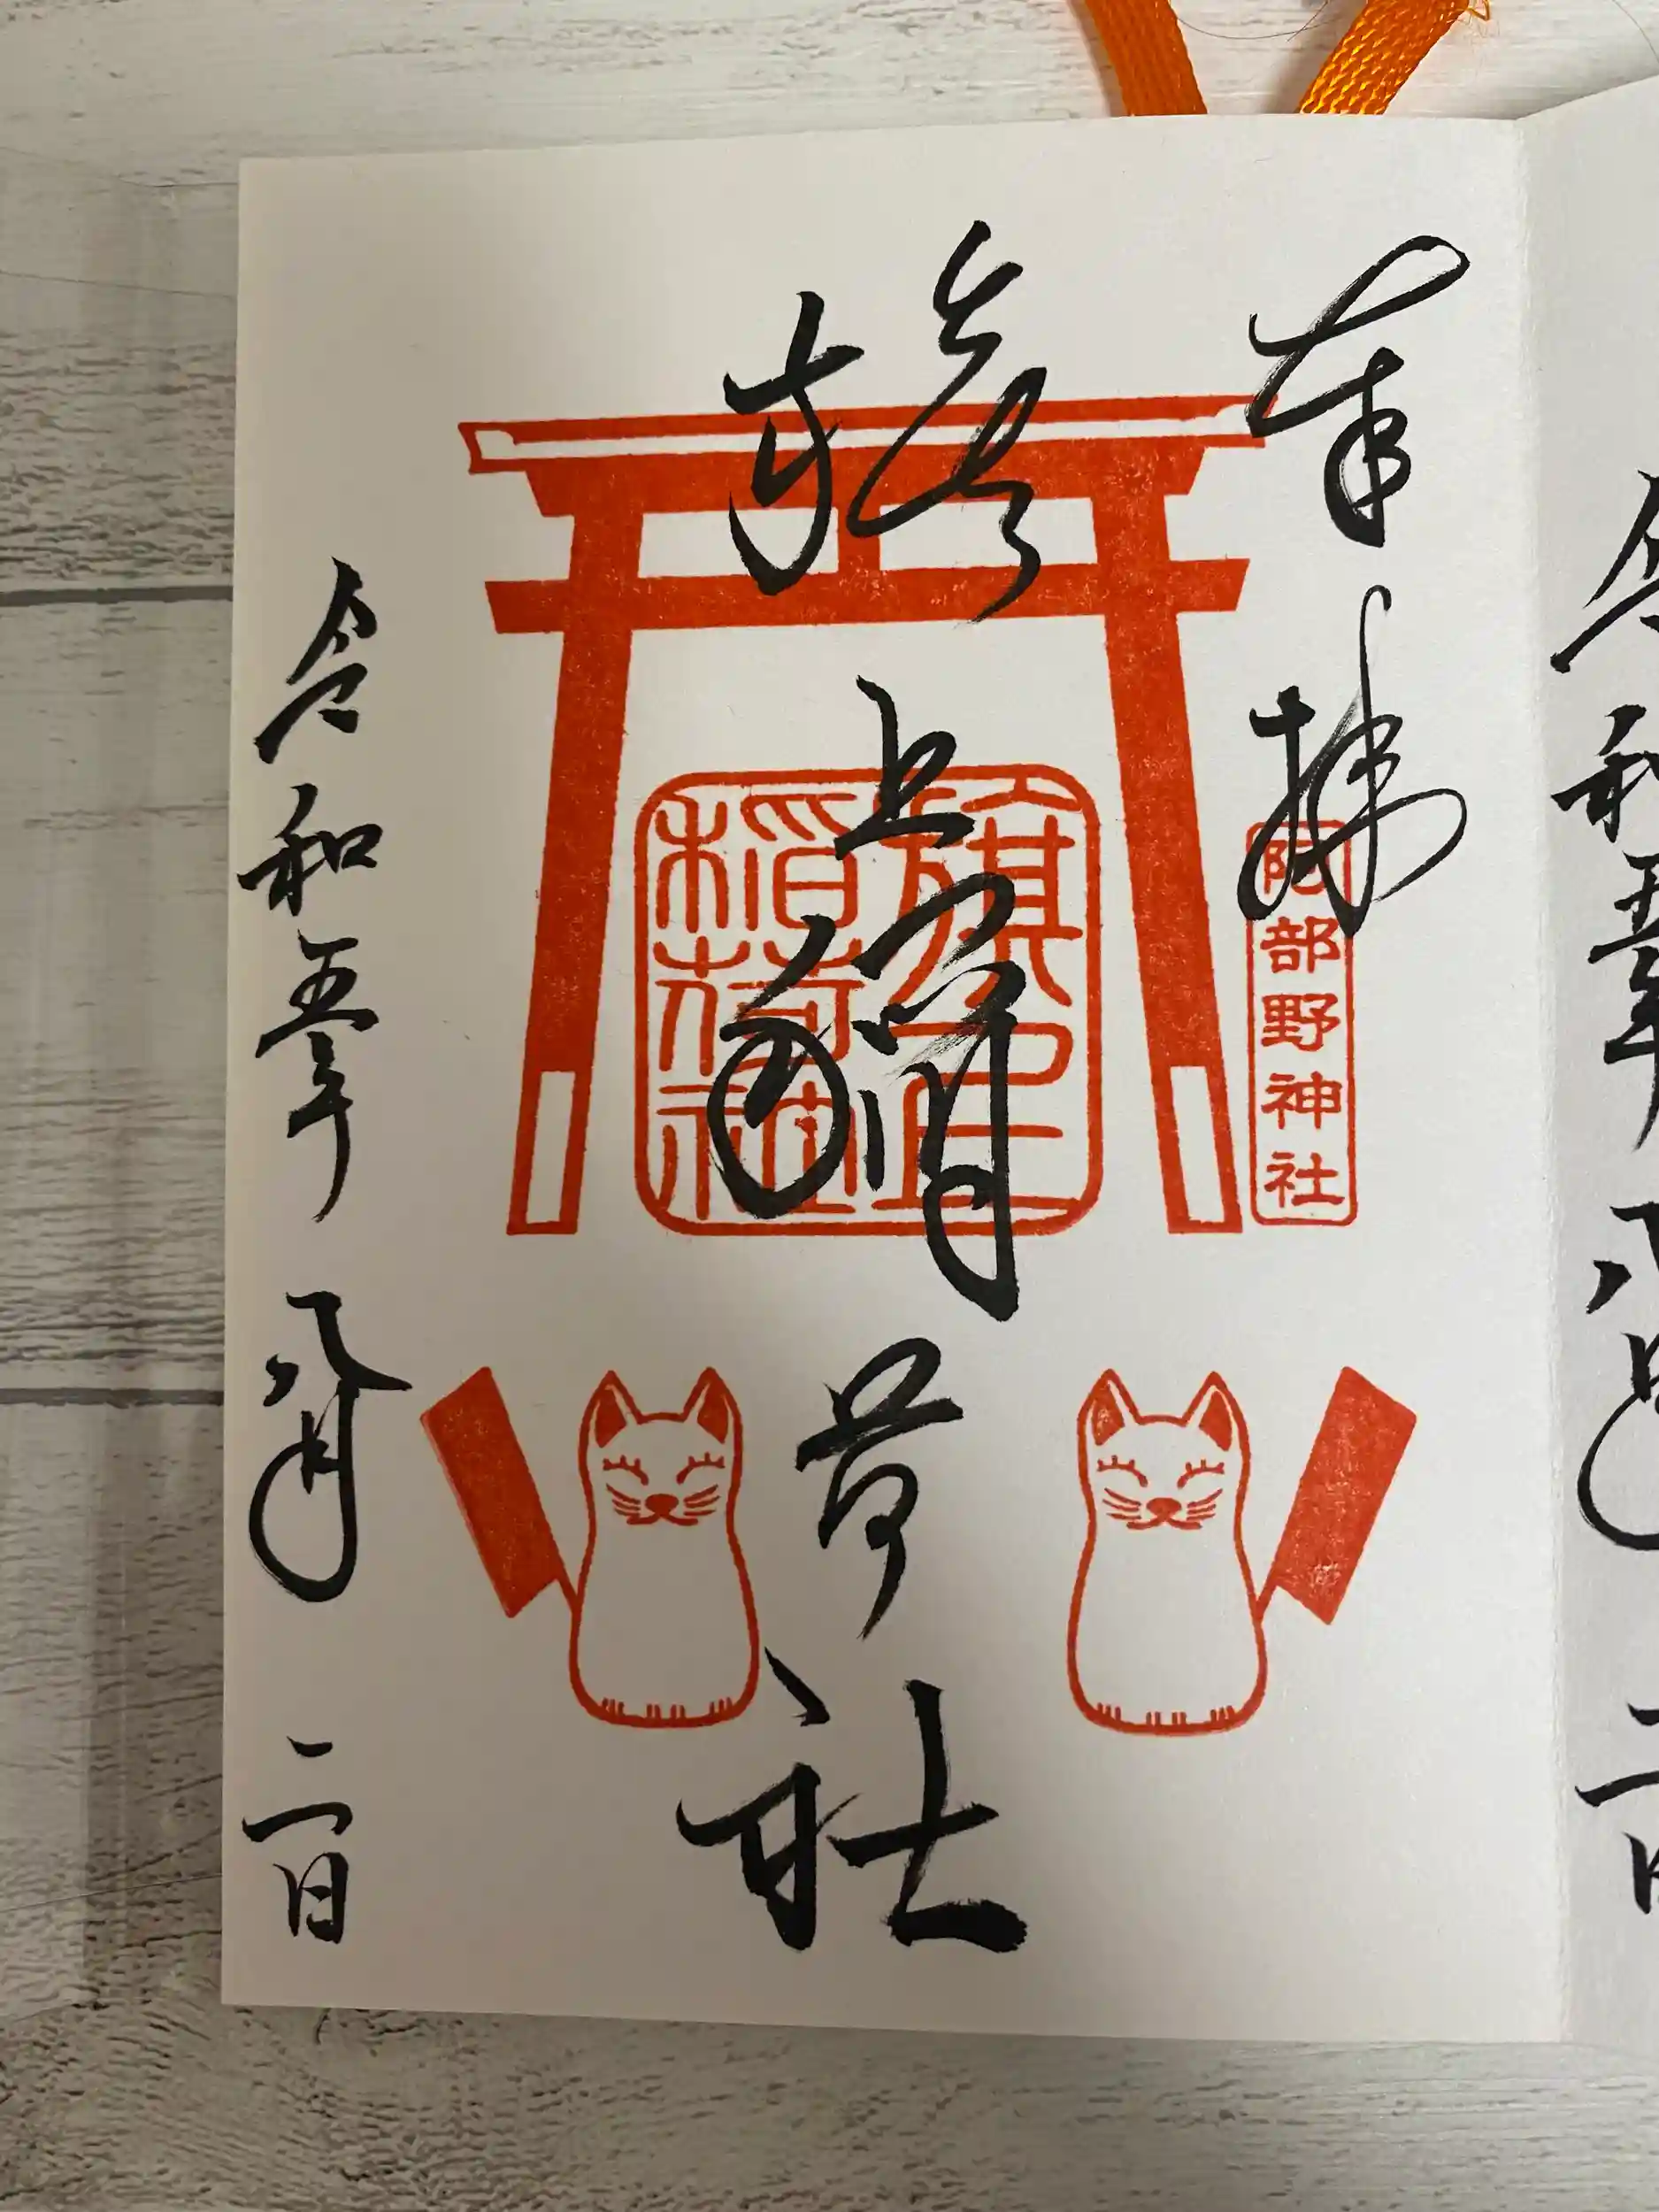 奉拝
阿部野神社
旗上稲荷社
旗上
稲荷社
令和五年八月二日
令和五年八月二日